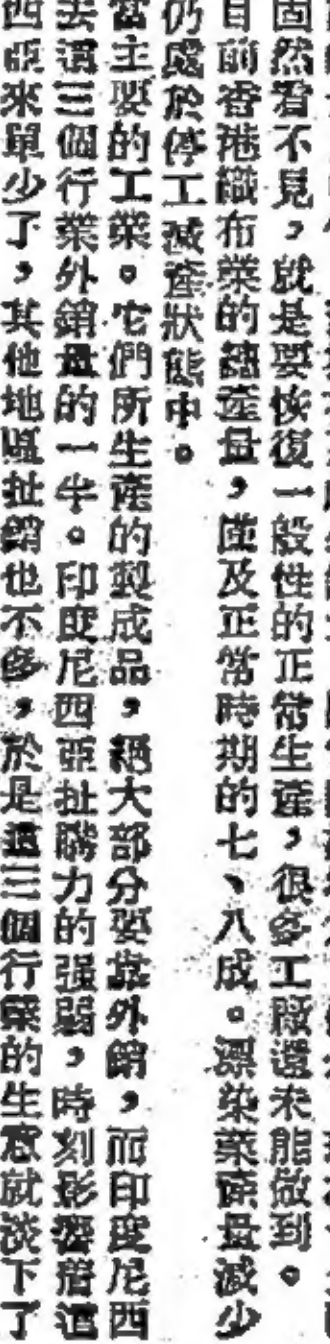 固然看不見，就是要恢復一般性的正常生產，很多工廠還未能做到。
目前香港織布業的總產量，僅及正常時期的七、八成。漂染業產量減少
仍處於停工減產狀態中。
當主要的工業。它們所生產的製成品，絕大部分要靠外銷，而印度尼西
去這三個行業外銷量的一半。印度尼西亞扯購力的强弱，時刻影響着這
西亞來單少了，其他地區扯銷也不多，於是這三個行業的生意就淡下了